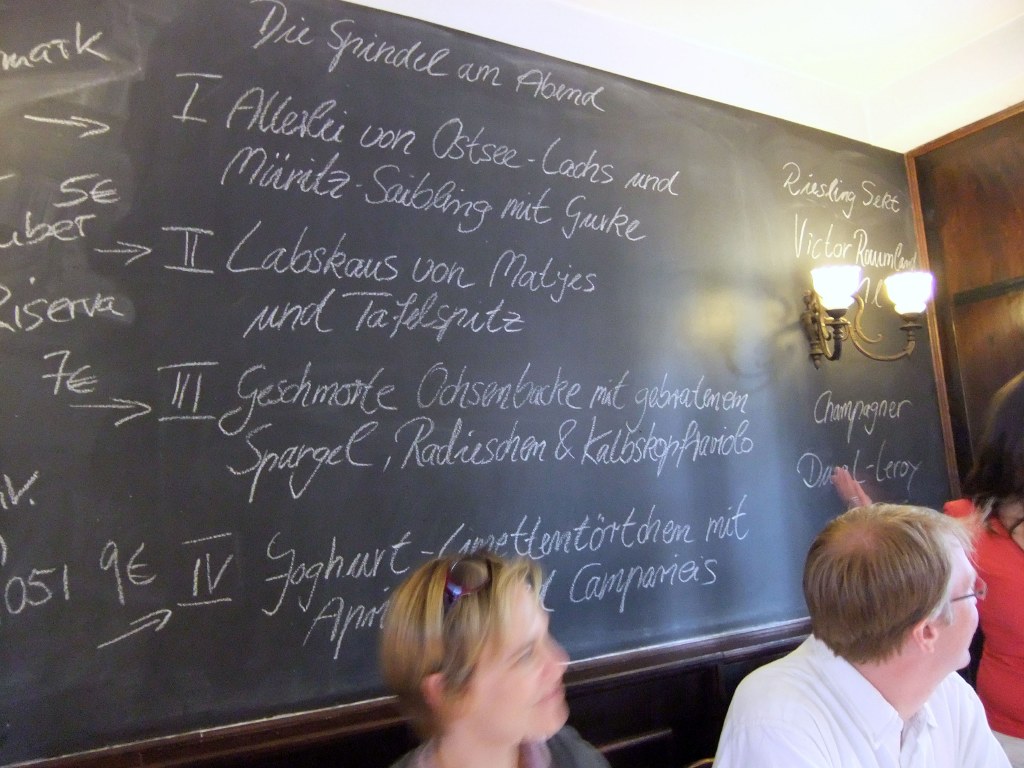 mark
5€
Riserva
7€
051 9€
Die Spindel am Abend
I Allerlei von Ostsee-Lachs und
Müritz-Saibling mit Gurke
II Labskaus von Matjes
und Tafelspitz
III Geschmorte Ochsenbacke mit gebratenem
Spargel, Radieschen & Kalbskopfraviolo
IV Joghurt-Limettentörtchen mit
Campari eis
Riesling Sekt
Victor Raumland
Champagner
Leroy